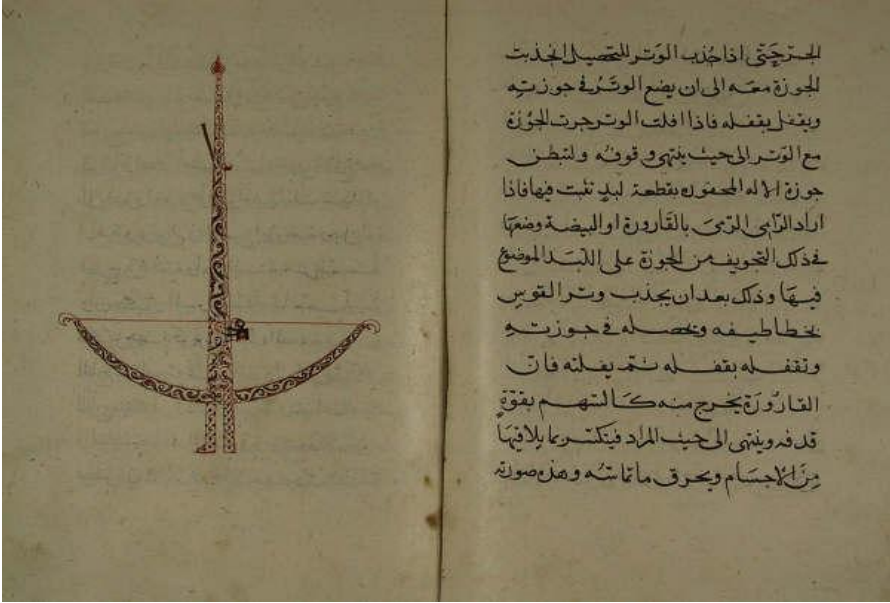 الجرّ حَتّى اذا جُذب الوَتر للتحصيل انجذبت
الجوزة معَه الى ان يضع الوتَرُ في جوزتِه
ويقفل بقفله فاذا افلت الوتر جرت الجوْزة
مع الوَتر الى حيث ينتهى وقوفُه ولتبطن
جوزة الاله المحفوره بقطعة لبدٍ تثبت فيها فاذا
اراد الرّامى الرّمىَ بالقَارورة او البيضة وضعَها
فى ذلك التجويف من الجوزة على اللبَد الموضوع
فيهَا وذلك بعد ان يجذب وتر القوس
بخطاطيفه ويحصله فى جوزتهِ
وتقفله بقفله ثم يفلته فانّ
القارُورَة يخرج منه كَالسّهم بقوّةٍ
قدفه وينتهى الى حيث المراد فيتكسّر بما يلاقيهَا
مِنَ الاجسَام ويحرق ما تماسّه وهذه صورته